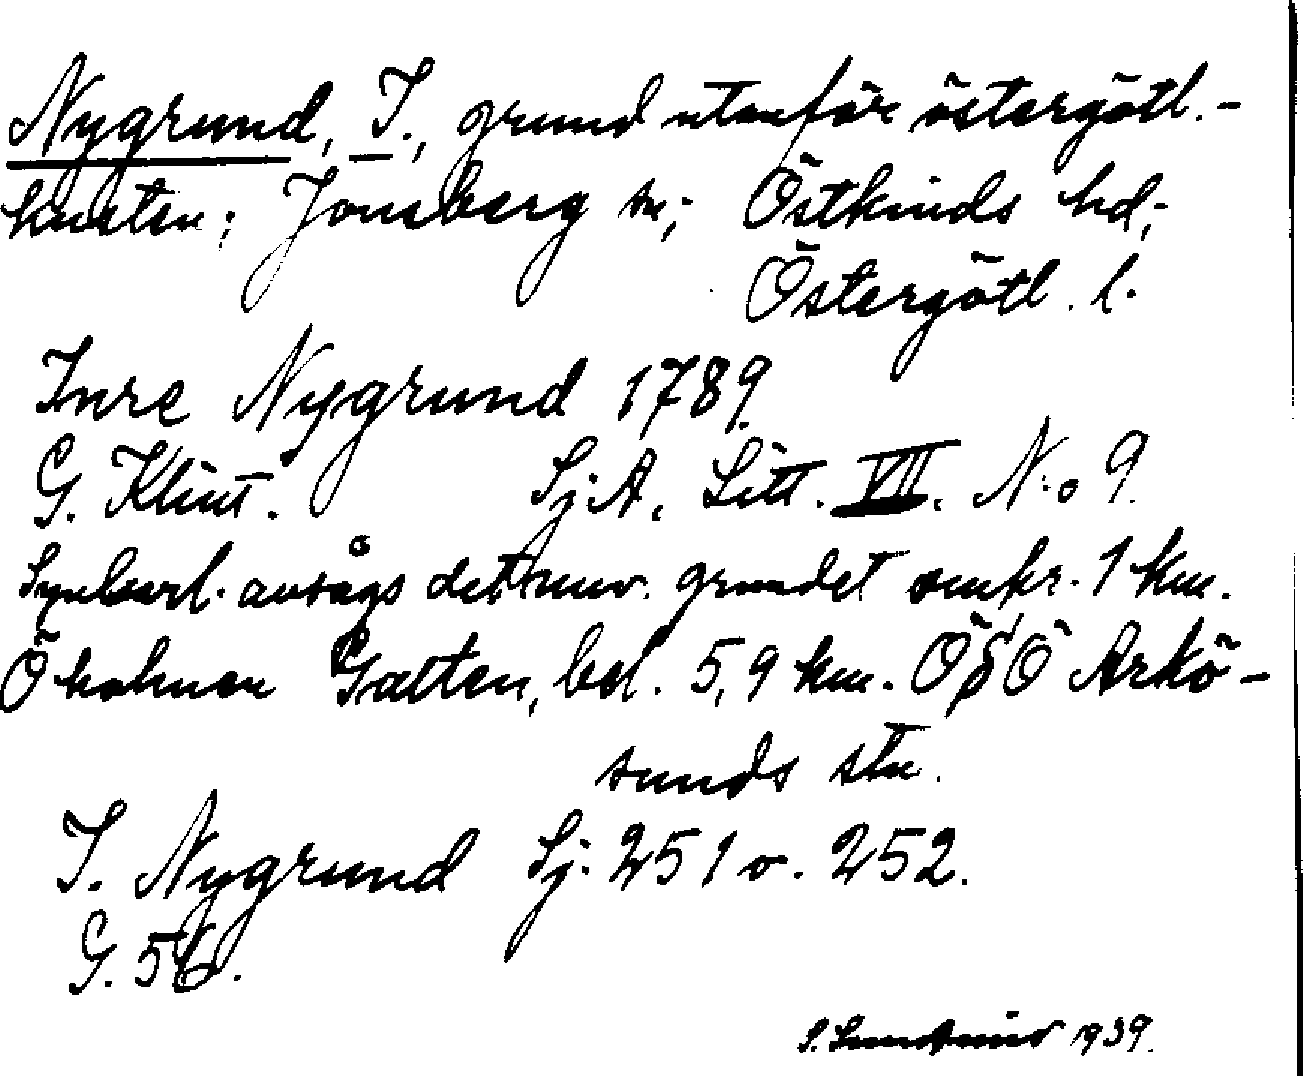 Nygrund, I., grund utanför östergötl.-
kusten; Jonsberg sn; Östkinds hd;
Östergötl. l.
Inre Nygrund 1789.
G. Klint. Sj.A. Litt. VII. N:o 9.
Synbarl. avsågs det nuv. grundet omkr. 1 km.
Ö holmen Gatten, bel. 5,9 km. ÖSÖ Arkö-
sunds stn.
I. Nygrund Sj. 251 o. 252.
G. 56.
1939.